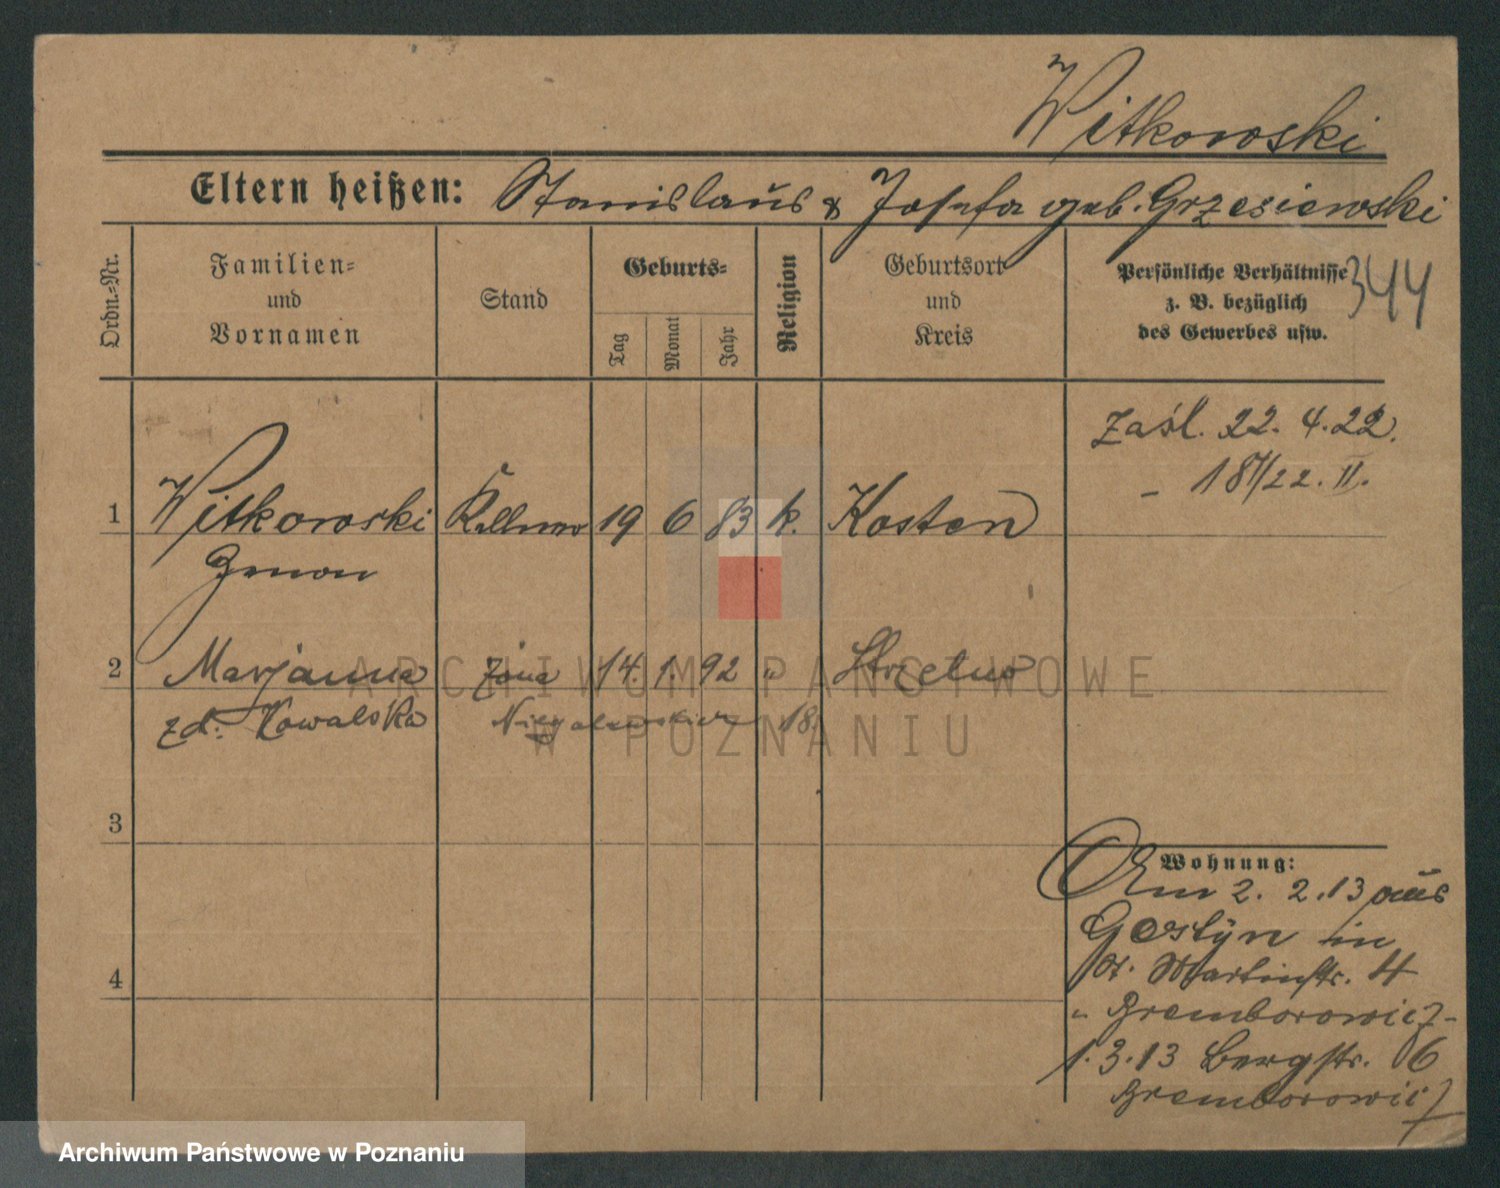 Witkowski
Eltern heißen: Stanislaus & Josefa geb. Grzesiewski
Ordn.=Nr.
Familien=
und
Vornamen
Stand
Geburts=
Tag
Monat
Jahr
Religion
Geburtsort
und
Kreis
Persönliche Verhältnisse
z. B. bezüglich
des Gewerbes usw.
344
zaśl. 22. 4. 22.
- 187/22. II.
1 Witkowski Kellner 19 6 83 k. Kosten
Zenon
2 Marjanna żona 14. 1. 92 " Strzelno
zd. Kowalska 18.
3
4
Wohnung:
Am 2. 2. 13 aus
Gostyn in
St. Martinstr. 4
" Bremborowicz
1. 3. 13 Bergstr. 6
Bremborowicz
ARCHIWUM PAŃSTWOWE
W POZNANIU
Archiwum Państwowe w Poznaniu